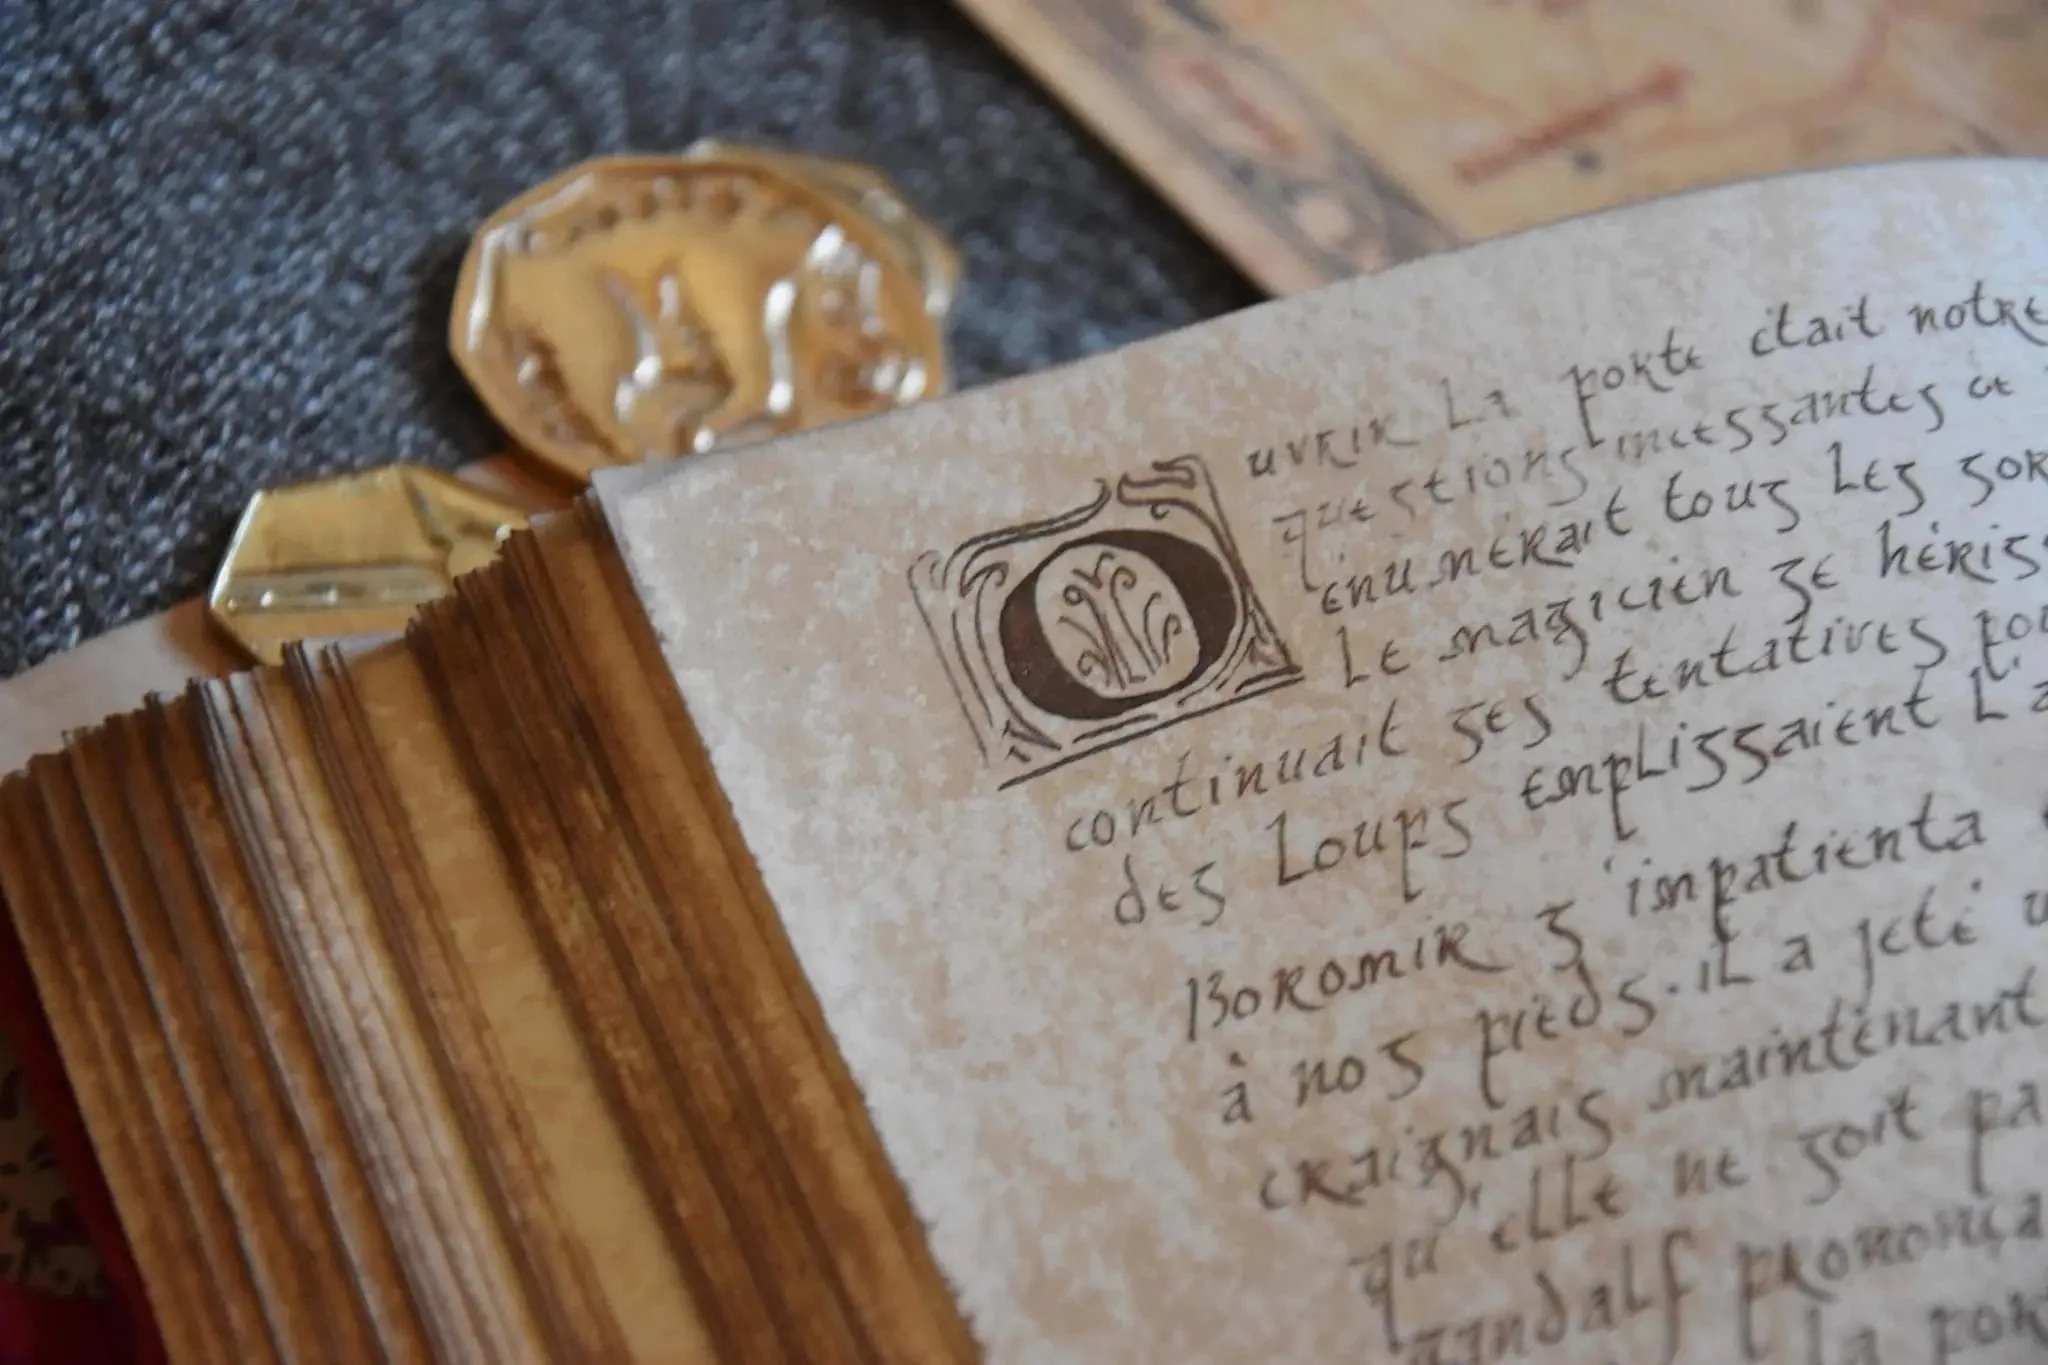 Ouvrir la porte était notre
questions incessantes de
énumérait tous les sor
le magicien se héris
continuait ses tentatives pou
des loups emplissaient l'a
Boromir s'impatienta
à nos pieds. il a jeté u
craignais maintenant
qu'elle ne soit pa
gandalf prononça
la por